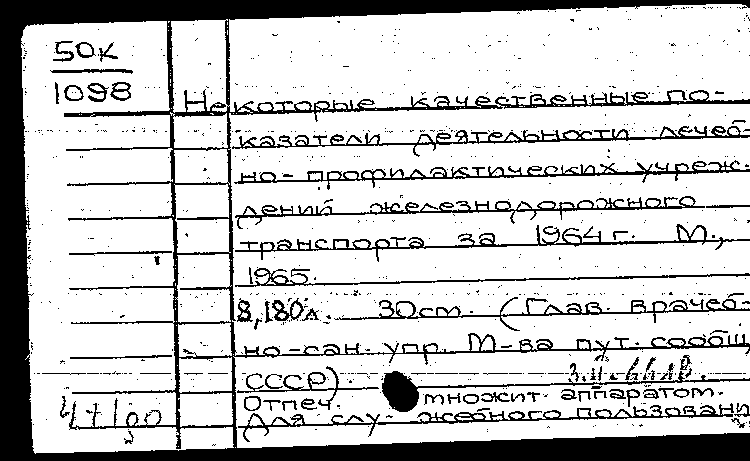 50к
1098
Некоторые качественные по-
казатели деятельности лечеб-
но-профилактических учреж-
дений железнодорожного
транспорта за 1964 г. М.,
1965.
8,180л. 30 см. (Глав. врачеб-
но-сан. упр. М-ва пут. сообщ.
СССР).
Отпеч. множит. аппаратом.
Для служебного пользовани